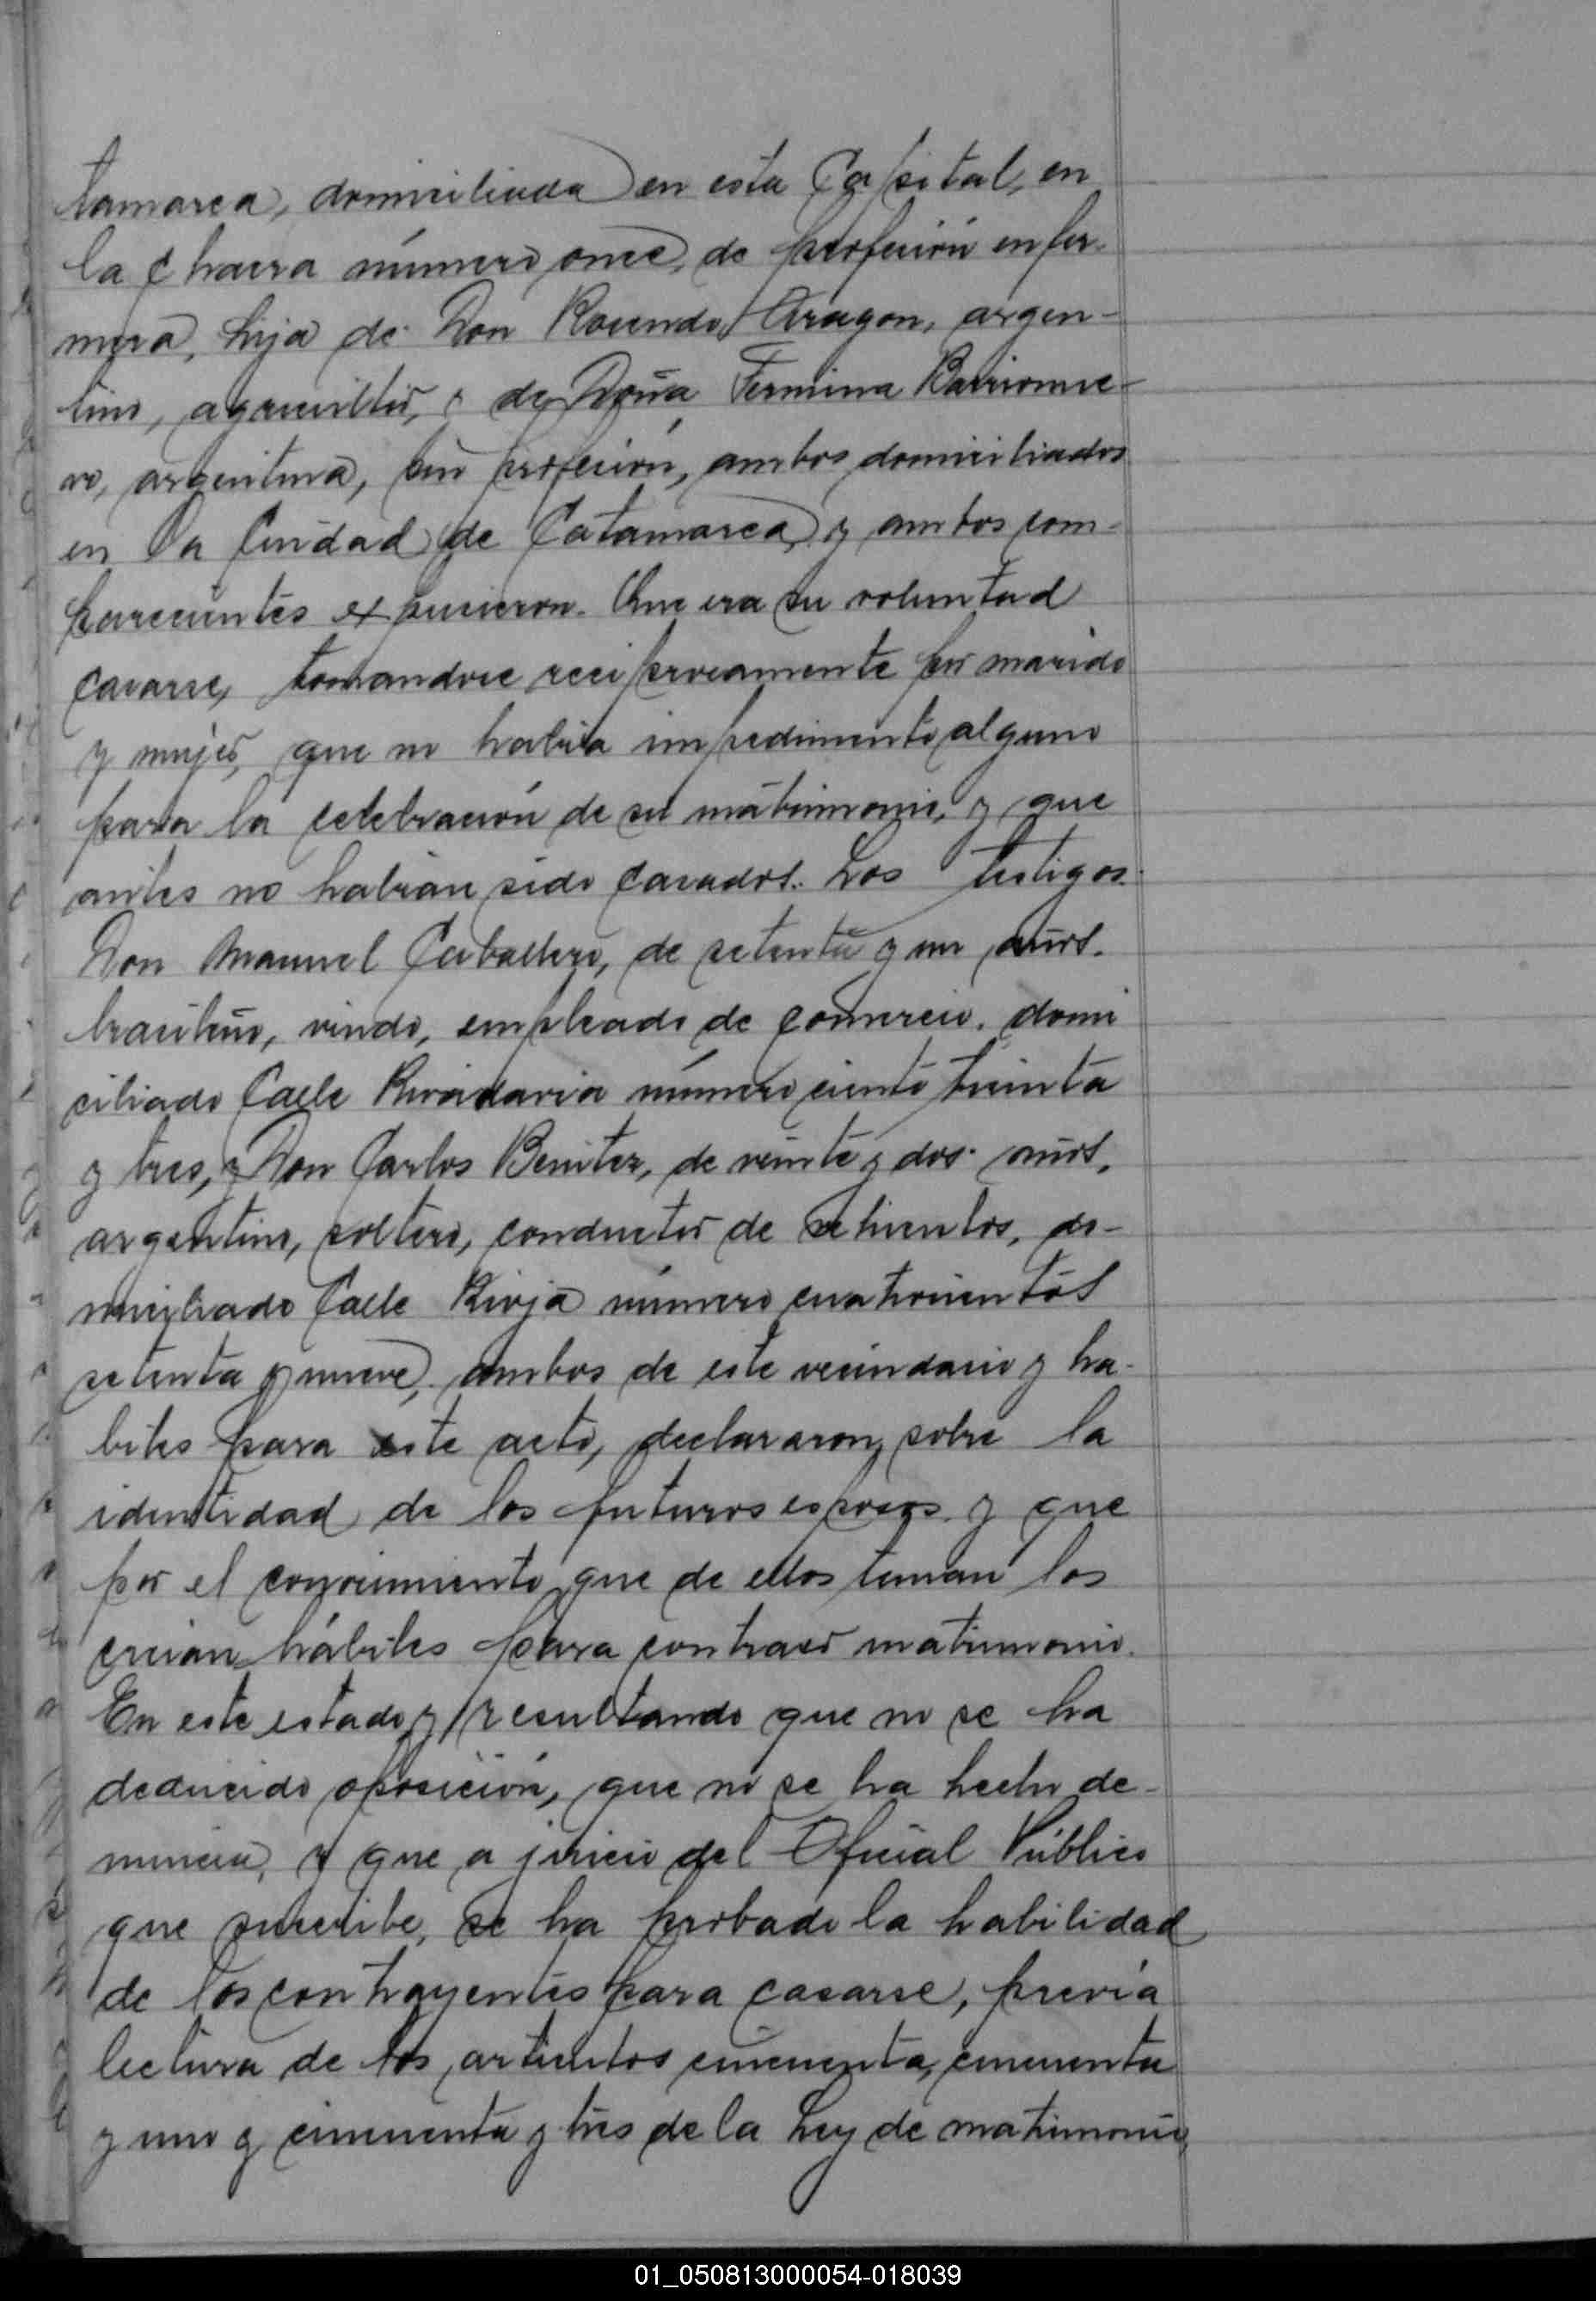 tamarca, domiciliada en esta Capital, en
la Chacra número once, de profesión enfer-
mera, hija de Don Rosendo Aragon, argen-
tino, agricultor, y de Doña Fermina Barrionue-
vo, argentina, sin profesión, ambos domiciliados
en la Ciudad de Catamarca, y ambos com-
parecientes expusieron. Que era su voluntad
casarse, tomandose reciprocamente por marido
y mujer, que no habia impedimento alguno
para la celebración de su matrimonio, y que
antes no habian sido casados. Los testigos
Don Manuel Caballero, de setenta y un años.
brasileño, viudo, empleado de comercio, domi
ciliado Calle Rivadavia número ciento treinta
y tres, y Don Carlos Benitez, de veinte y dos años,
argentino, soltero, conductor de vehiculos, do-
miciliado Calle Rioja número cuatrocientos
setenta y nueve, ambos de este vecindario y ha-
biles para este acto, declararon, sobre la
identidad de los futuros esposos y que
por el conocimiento que de ellos tenian los
creian hábiles para contraer matrimonio.
En este estado y resultando que no se ha
deducido oposición, que no se ha hecho de-
nuncia, y que a juicio del Oficial Público
que suscribe, se ha probado la habilidad
de los contrayentes para casarse, previa
lectura de los articulos cincuenta, cincuenta
y uno y cincuenta y tres de la Ley de matrimonio,
01_050813000054-018039